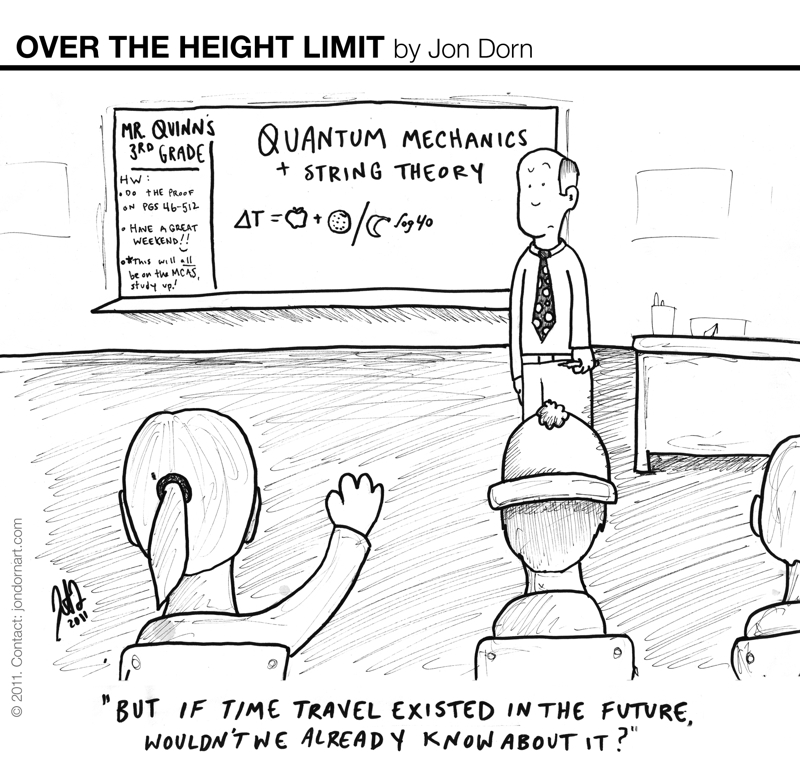 OVER THE HEIGHT LIMIT by Jon Dorn
MR. QUINN'S
3RD GRADE
HW:
• DO THE PROOF
ON PGS 46-512
• HAVE A GREAT
WEEKEND!!
• *This will all
be on the MCAS,
study up!
QUANTUM MECHANICS
+ STRING THEORY
ΔT = + / log 40
© 2011. Contact: jondornart.com
2011
"BUT IF TIME TRAVEL EXISTED IN THE FUTURE,
WOULDN'T WE ALREADY KNOW ABOUT IT?"